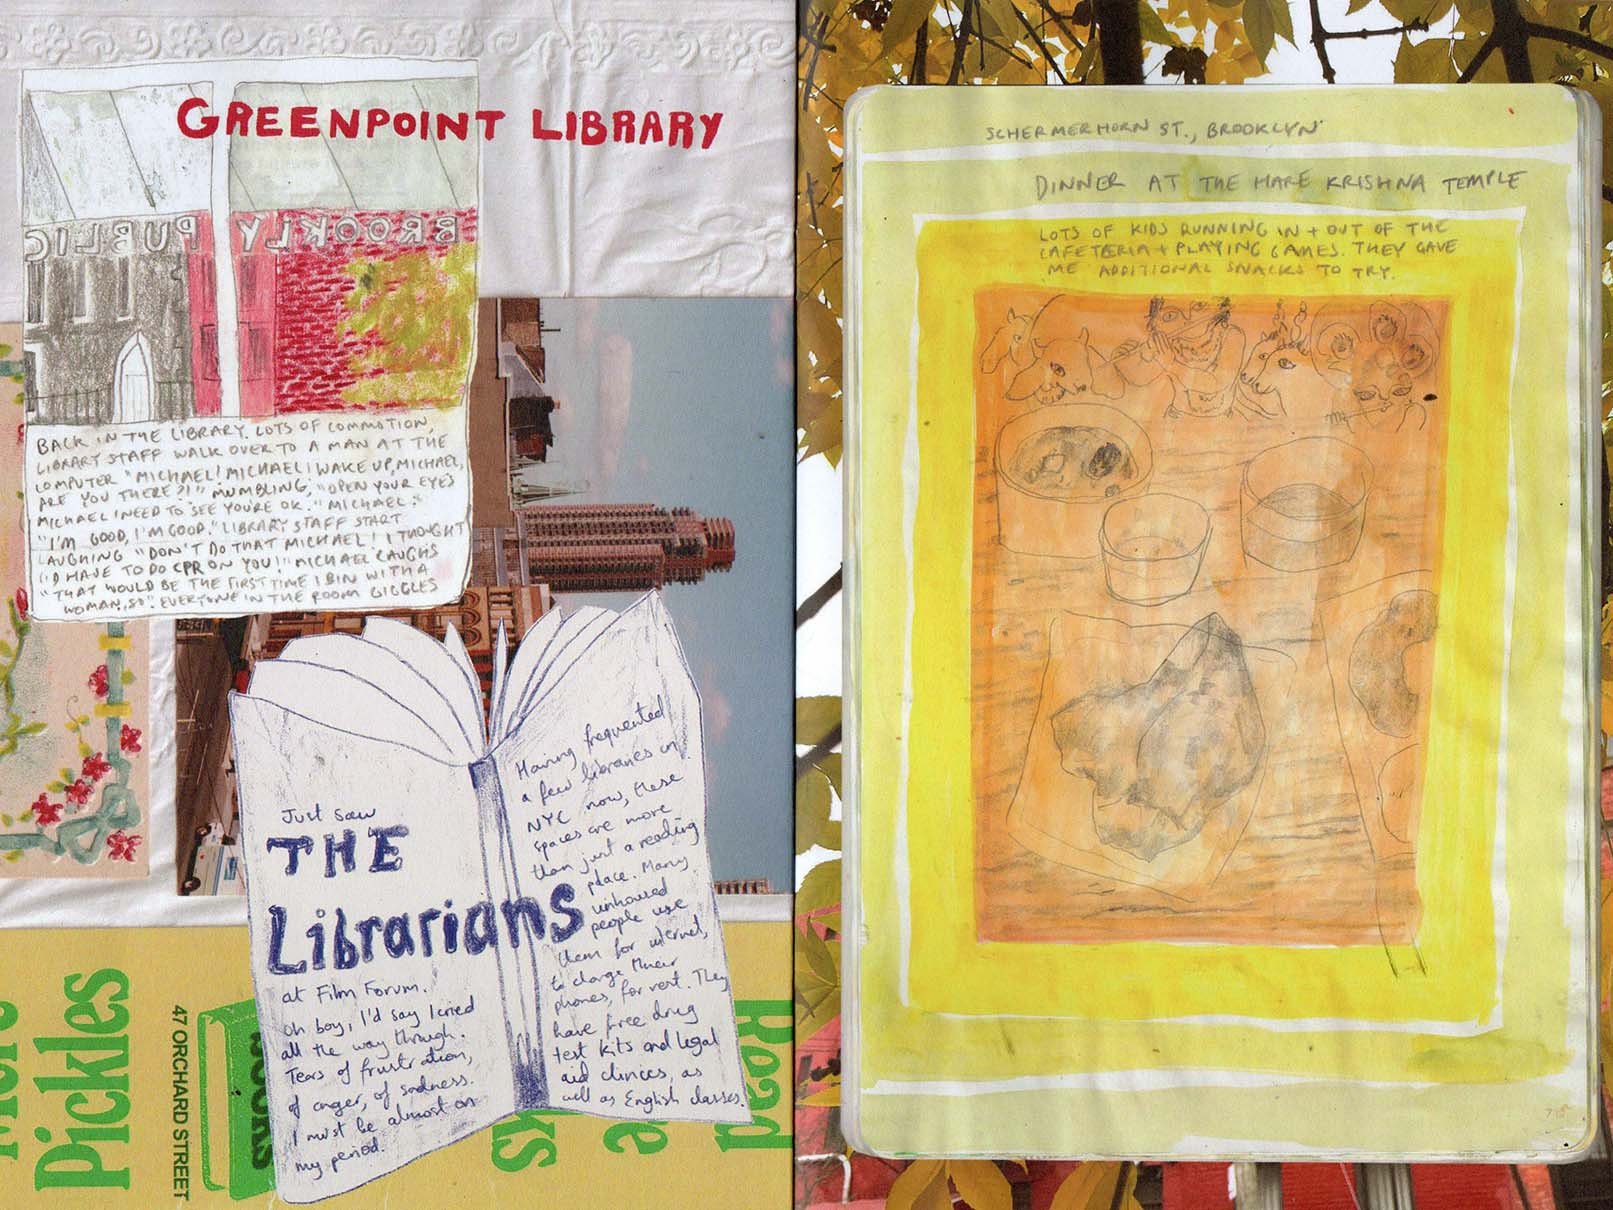 GREENPOINT LIBRARY
BROOKLY PUBLIC
BACK IN THE LIBRARY. LOTS OF COMMOTION,
LIBRARY STAFF WALK OVER TO A MAN AT THE
COMPUTER "MICHAEL! MICHAEL! WAKE UP, MICHAEL,
ARE YOU THERE?!" MUMBLING, "OPEN YOUR EYES
MICHAEL I NEED TO SEE YOU'RE OK." "MICHAEL."
"I'M GOOD, I'M GOOD." LIBRARY STAFF START
LAUGHING "DON'T DO THAT MICHAEL! I THOUGHT
I'D HAVE TO DO CPR ON YOU!" MICHAEL LAUGHS
"THAT WOULD BE THE FIRST TIME I BIN WITH A
WOMAN, SO". EVERYONE IN THE ROOM GIGGLES
Just saw
THE
Librarians
at Film Forum.
Oh boy, I'd say I cried
all the way through.
Tears of frustration,
of anger, of sadness.
I must be almost on
my period.
Having frequented
a few libraries in
NYC now, these
spaces are more
than just a reading
place. Many
unhoused
people use
them for internet,
to charge their
phones, for rest. They
have free drug
test kits and legal
aid clinics, as
well as English classes.
Pickles
47 ORCHARD STREET
BOOKS
Read
SCHERMERHORN ST., BROOKLYN
DINNER AT THE HARE KRISHNA TEMPLE
LOTS OF KIDS RUNNING IN + OUT OF THE
CAFETERIA + PLAYING GAMES. THEY GAVE
ME ADDITIONAL SNACKS TO TRY.